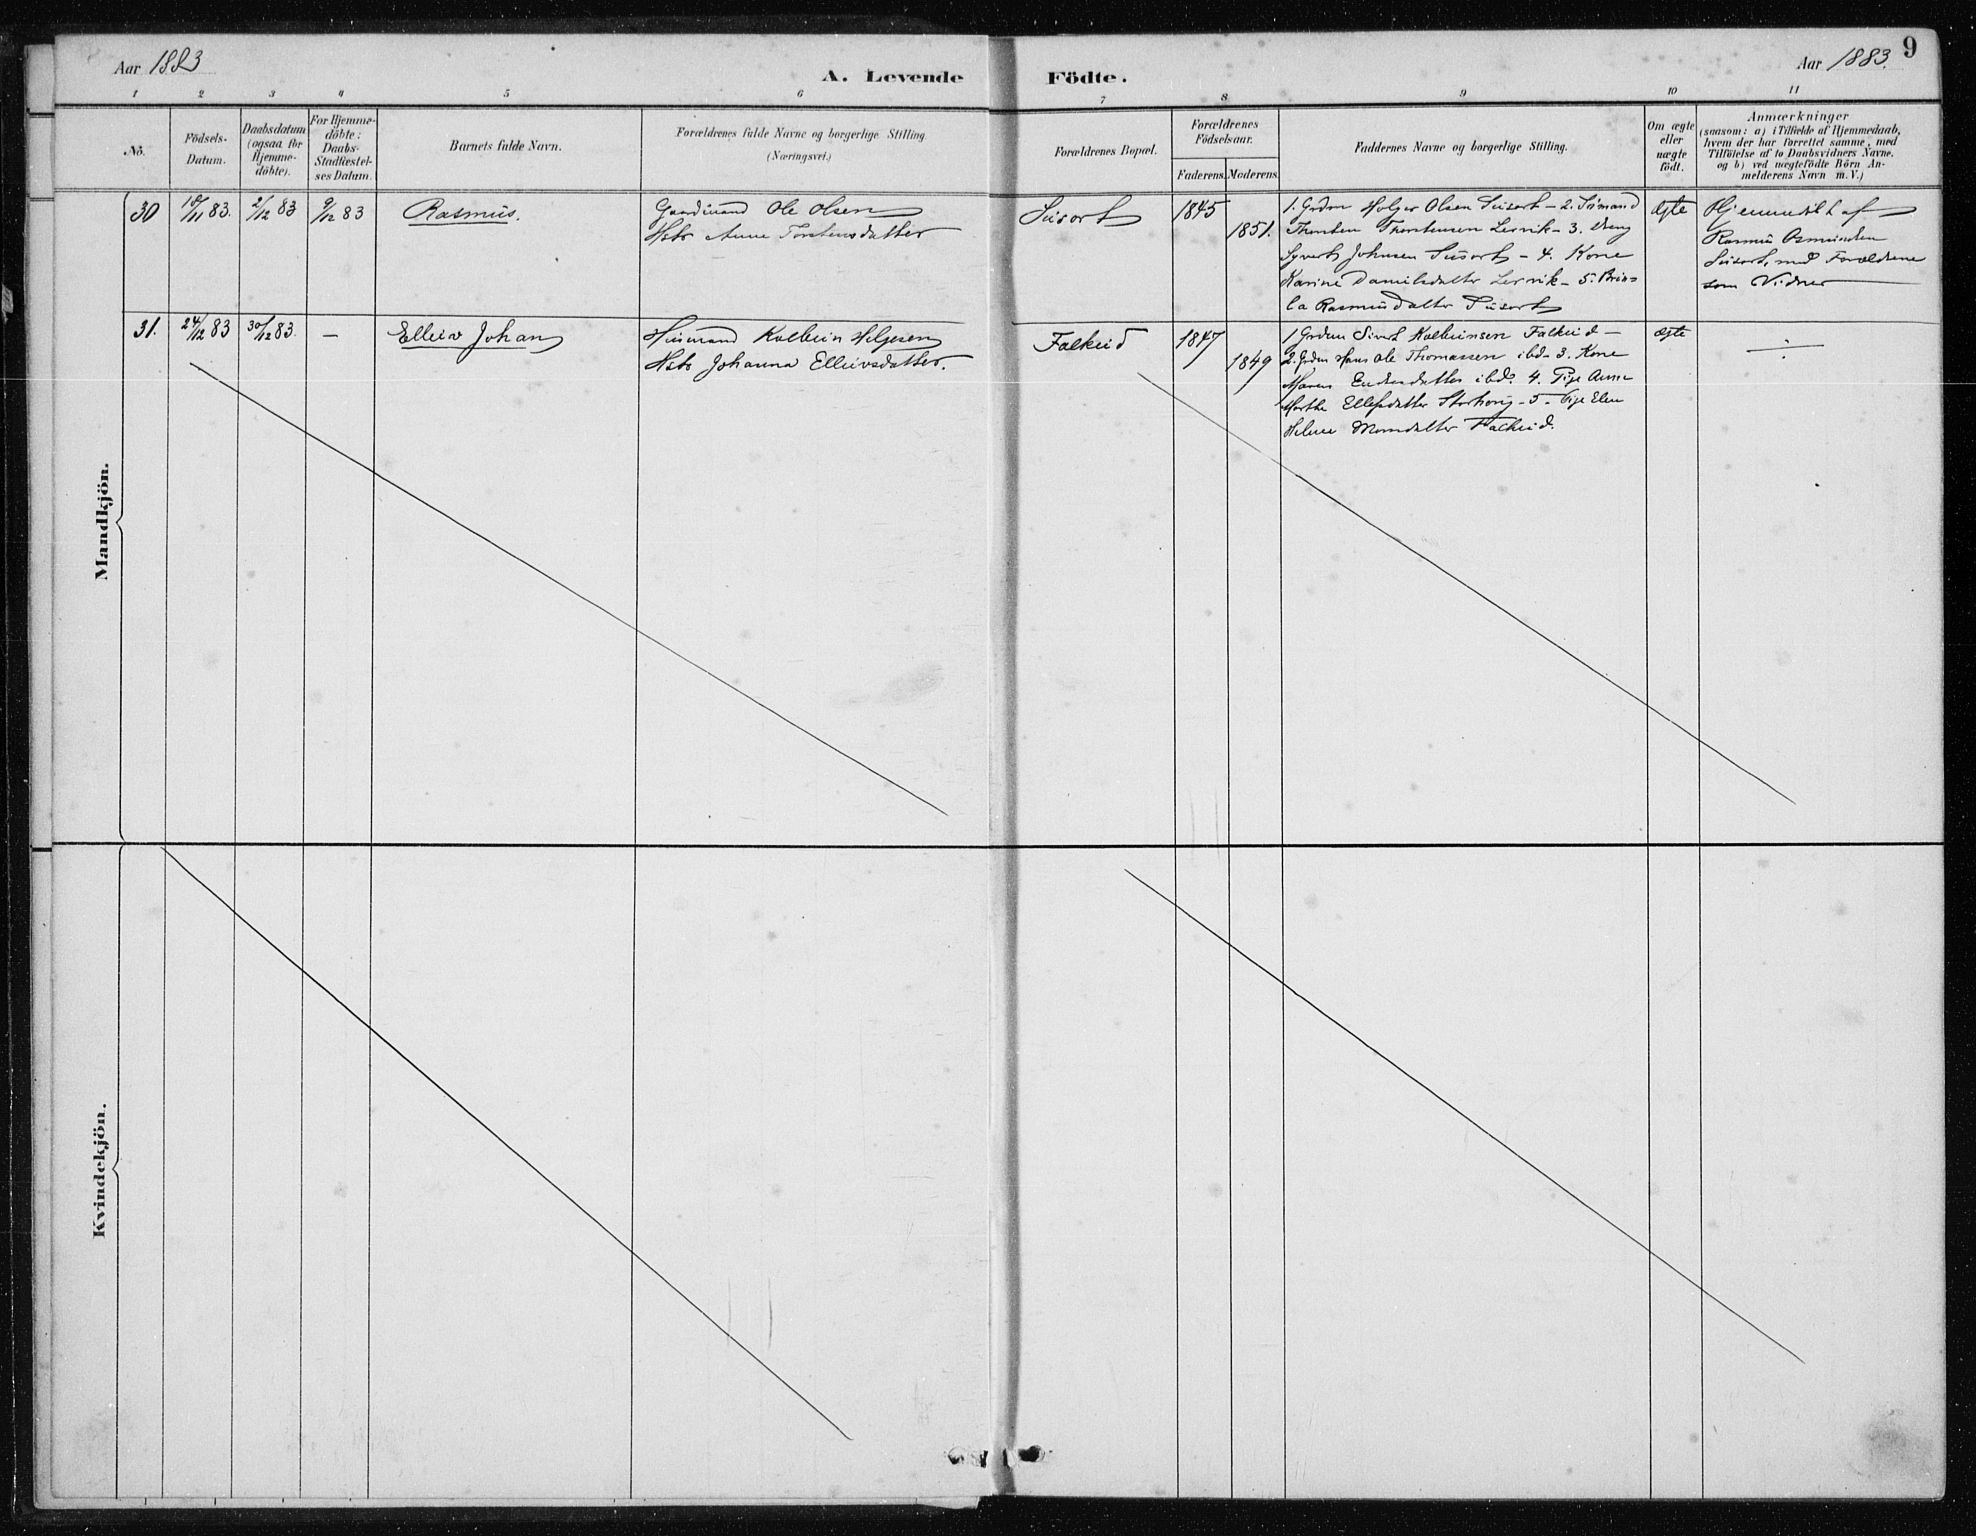 Aar 1883
A. Levende Födte.
Aar 1883.
9
1 2 3 4 5 6 7 8 9 10 11
No.
Födsels-
Datum.
Daabsdatum
(ogsaa for
Hjemme-
döbte).
For Hjemme-
döbte:
Daabs-
Stadfæstel-
ses Datum.
Barnets fulde Navn.
Forældrenes fulde Navne og borgerlige Stilling
(Næringsvei.)
Forældrenes Bopæl.
Forældrenes
Födselsaar.
Faderens. Moderens.
Faddernes Navne og borgerlige Stilling.
Om ægte
eller
uægte
födt.
Anmærkninger
(saasom: a) i Tilfælde af Hjemmedaab,
hvem der har forrettet samme, med
Tilföielse af to Daabsvidners Navne,
og b) ved uægtefödte Börn An-
melderens Navn m. V.)
Mandkjön.
30
18/11 83.
2/12 83
9/12 83
Rasmus.
Gaardmand Ole Olsen
Hstr Anne Torstensdatter
Susort
1845
1851.
1. Grdm Holger Olsen Susort – 2. Sömand
Thorsten Thorstensen Lervik – 3. Dreng
Syvert Johnsen Susort – 4. Kone
Karine Danielsdatter Lervik – 5.
Rasmusdatter Susort
Ægte
Hjemmedöbt af
Rasmus Asmundsen
Susort, med Forældrene
som Vidner
31.
24/12 83
30/12 83.
–
Elleiv Johan
Husmand Kolbein Helgesen
Hstr Johanna Elleivsdatter.
Falkeid
1847
1849
1 Grdm Sivert Kolbeinsen Falkeid –
2. Grdm Hans Ole Thomassen ibd – 3. Kone
Maren Endresdatter ibd. 4. Pige Anne
Marthe Ellefsdatter – 5. Pige Elen
Helene Falkeid.
ægte
÷
Kvindekjön.